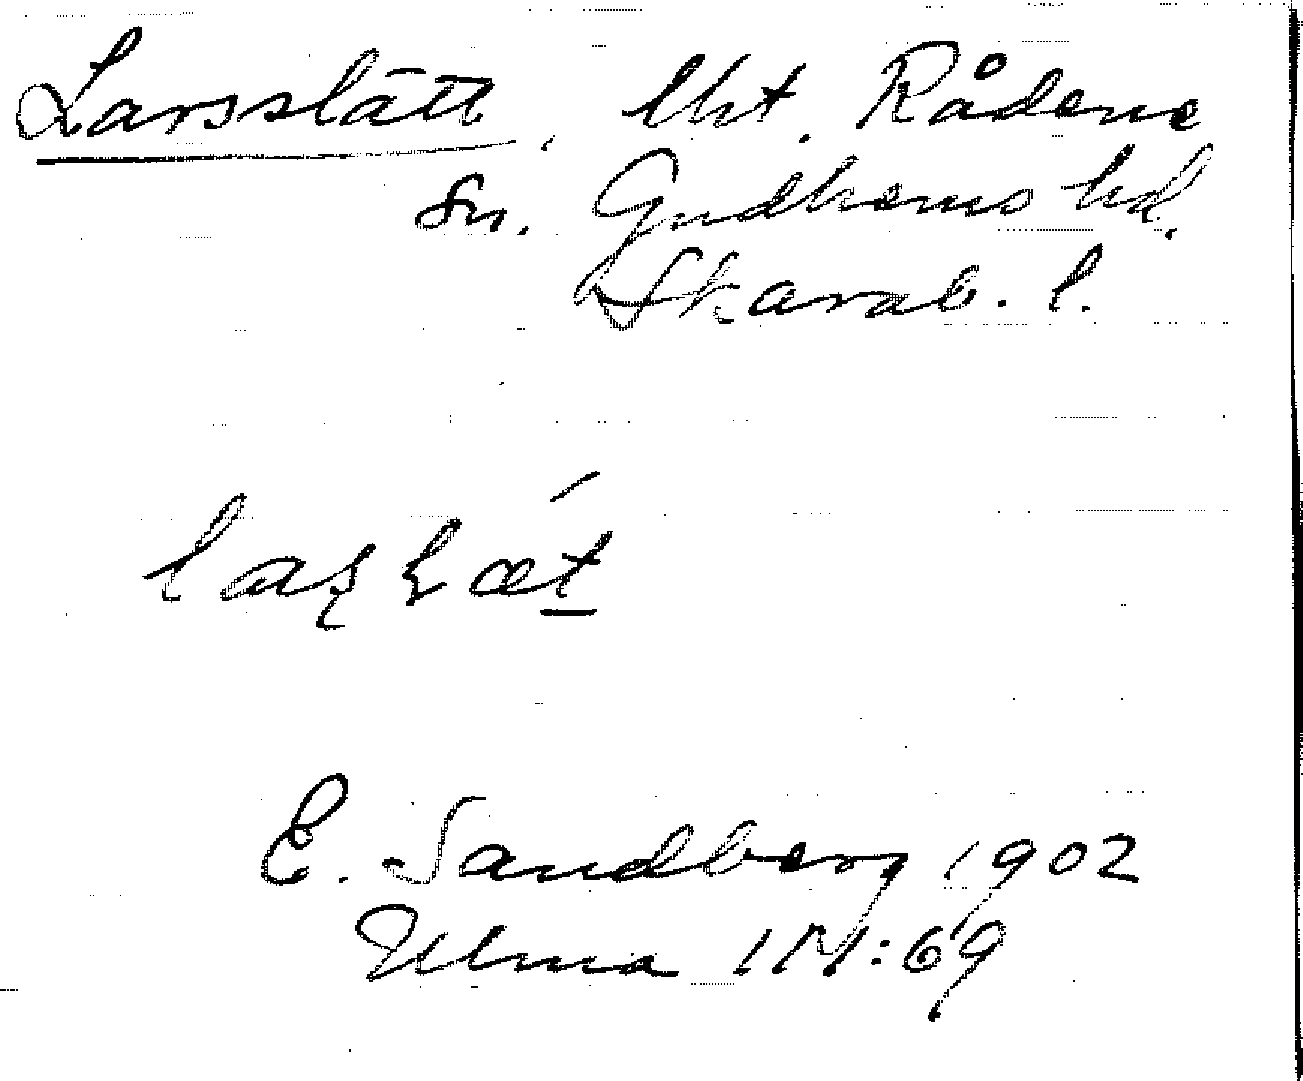 Larsslätt, lht. Rådene
sn. Gudhems hd.
Skarab. l.
E. Sandberg 1902
Ulma 114:69